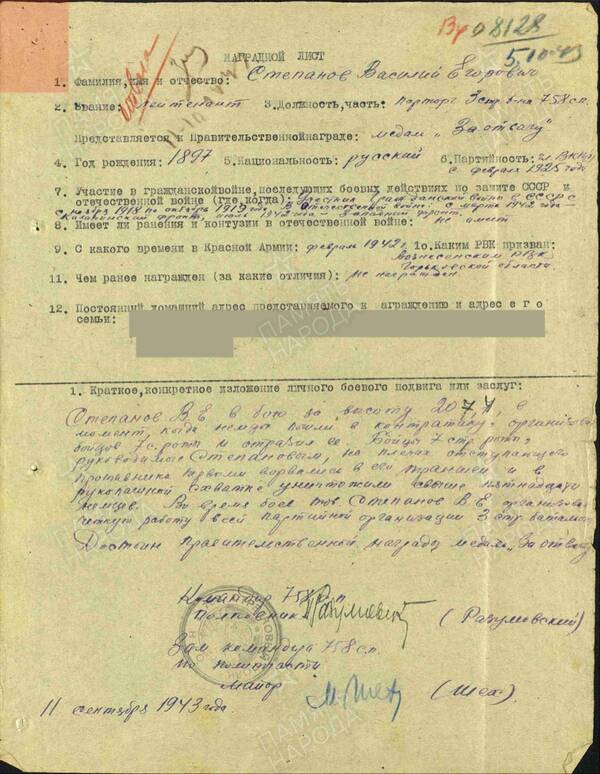 Ву 08128
5/10-43
НАГРАДНОЙ ЛИСТ
1. Фамилия, имя и отчество: Степанов Василий Егорович
2. Звание: Лейтенант 3. Должность, часть: парторг 3 стр. б-на 758 сп.
Представляется к Правительственнойнаграде: медаль "За отвагу"
4. Год рождения: 1897 5. Национальность: русский 6. Партийность: чл. ВКП(б)
с февраля 1925 года
7. Участие в гражданскойвойне, последующих боевых действиях по защите СССР и
отечественной войне (где, когда): Участник гражданской войны в СССР с
ноября 1918 по октябрь 1919 года. В Отечественной войне: с марта 1942 года –
Калининский фронт, июль 1942 года – Западный фронт.
8. Имеет ли ранения и контузии в отечественной войне: Не имеет
9. С какого времени в Красной Армии: февраль 1942 г. 1о. Каким РВК призван:
Вознесенским РВК
Горьковской области
11. Чем ранее награжден (за какие отличия): Не награжден.
12. Постоянный домашний адрес представляемого к аграждению и адрес е г о
семьи:
1. Краткое, конкретное изложение личного боевого подвига или заслуг:
Степанов В Е в бою за высоту 207,1, в
момент, когда немцы пошли в контратаку, организовал
бойцов 7 с.роты и отразил ее. Бойцы 7 стр. роты
руководимые Степановым, на плечах отступающего
противника первыми ворвались в его траншеи и в
рукопашной схватке уничтожили свыше пятнадцати
немцев. Во время боев тов. Степанов В Е организовал
четкую работу всей партийной организации 3 стр. батальона
Достоин правительственной награды медаль "За отвагу"
Командир 758 сп
Полковник (Разумовский)
Зам. командира 758 сп.
по политчасти
майор (Шех.)
11 сентября 1943 года
ПАМЯТЬ НАРОДА